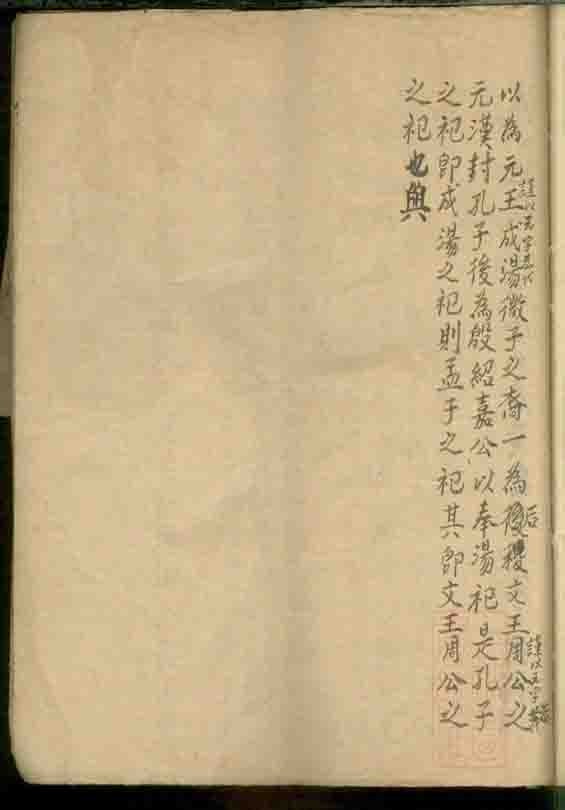 以為元王成湯微子之裔一為後稷文王周公之
后
元漢封孔子後為殷紹嘉公以奉湯祀是孔子
之祀即成湯之祀則孟子之祀其即文王周公之
之祀也與